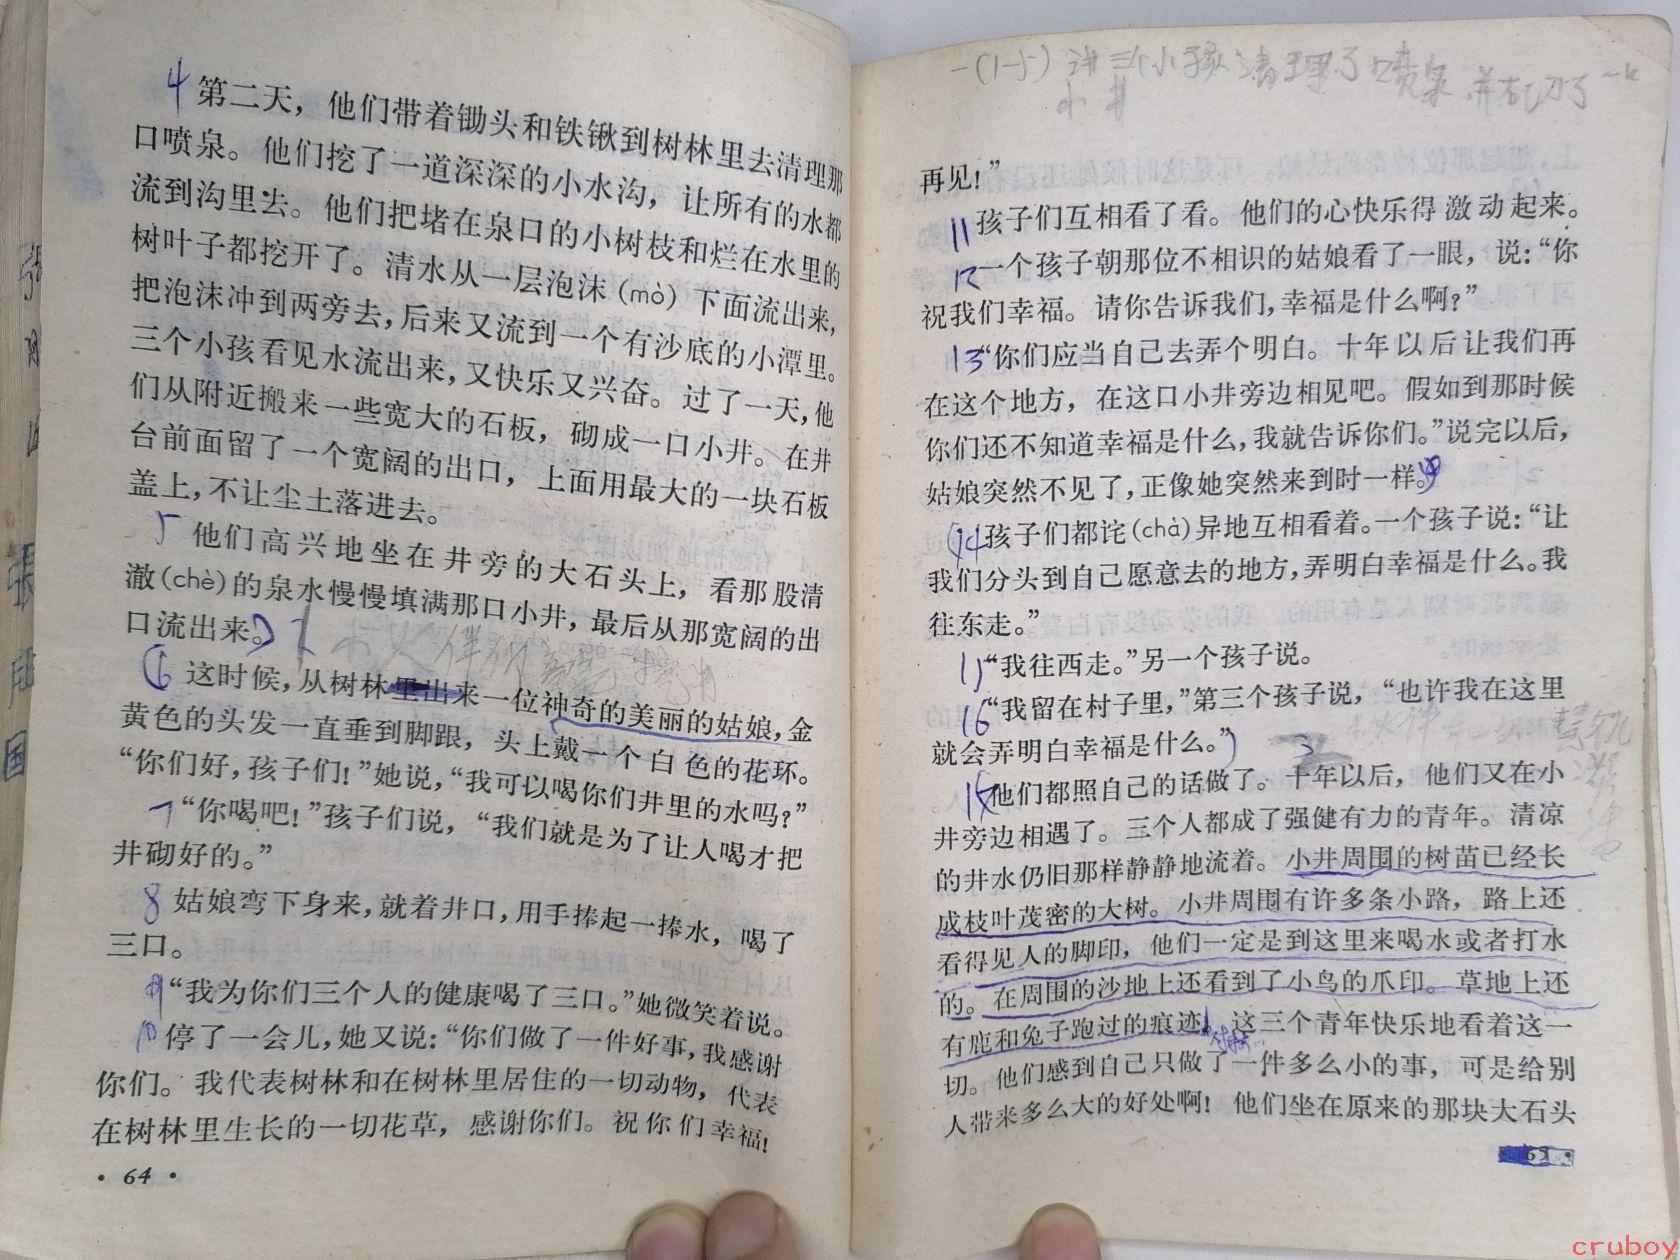 4 第二天，他们带着锄头和铁锹到树林里去清理那
口喷泉。他们挖了一道深深的小水沟，让所有的水都
流到沟里去。他们把堵在泉口的小树枝和烂在水里的
树叶子都挖开了。清水从一层泡沫(mò)下面流出来，
把泡沫冲到两旁去，后来又流到一个有沙底的小潭里。
三个小孩看见水流出来，又快乐又兴奋。过了一天，他
们从附近搬来一些宽大的石板，砌成一口小井。在井
台前面留了一个宽阔的出口，上面用最大的一块石板
盖上，不让尘土落进去。
5 他们高兴地坐在井旁的大石头上，看那股清
澈(chè)的泉水慢慢填满那口小井，最后从那宽阔的出
口流出来。
6 这时候，从树林里出来一位神奇的美丽的姑娘，金
黄色的头发一直垂到脚跟，头上戴一个白色的花环。
“你们好，孩子们！”她说，“我可以喝你们井里的水吗？”
7 “你喝吧！”孩子们说，“我们就是为了让人喝才把
井砌好的。”
8 姑娘弯下身来，就着井口，用手捧起一捧水，喝了
三口。
9 “我为你们三个人的健康喝了三口。”她微笑着说。
10 停了一会儿，她又说：“你们做了一件好事，我感谢
你们。我代表树林和在树林里居住的一切动物，代表
在树林里生长的一切花草，感谢你们。祝你们幸福！
· 64 ·
一(1-5)讲三个小孩清理了喷泉并砌了一口
小井
再见！”
11 孩子们互相看了看。他们的心快乐得激动起来。
12 一个孩子朝那位不相识的姑娘看了一眼，说：“你
祝我们幸福。请你告诉我们，幸福是什么啊？”
13 “你们应当自己去弄个明白。十年以后让我们再
在这个地方，在这口小井旁边相见吧。假如到那时候
你们还不知道幸福是什么，我就告诉你们。”说完以后，
姑娘突然不见了，正像她突然来到时一样。
14 孩子们都诧(chà)异地互相看着。一个孩子说：“让
我们分头到自己愿意去的地方，弄明白幸福是什么。我
往东走。”
15 “我往西走。”另一个孩子说。
16 “我留在村子里，”第三个孩子说，“也许我在这里
就会弄明白幸福是什么。”
17 他们都照自己的话做了。十年以后，他们又在小
井旁边相遇了。三个人都成了强健有力的青年。清凉
的井水仍旧那样静静地流着。小井周围的树苗已经长
成枝叶茂密的大树。小井周围有许多条小路，路上还
看得见人的脚印，他们一定是到这里来喝水或者打水
的。在周围的沙地上还看到了小鸟的爪印。草地上还
有鹿和兔子跑过的痕迹。这三个青年快乐地看着这一
切。他们感到自己只做了一件多么小的事，可是给别
人带来多么大的好处啊！他们坐在原来的那块大石头
65 ·
cruboy